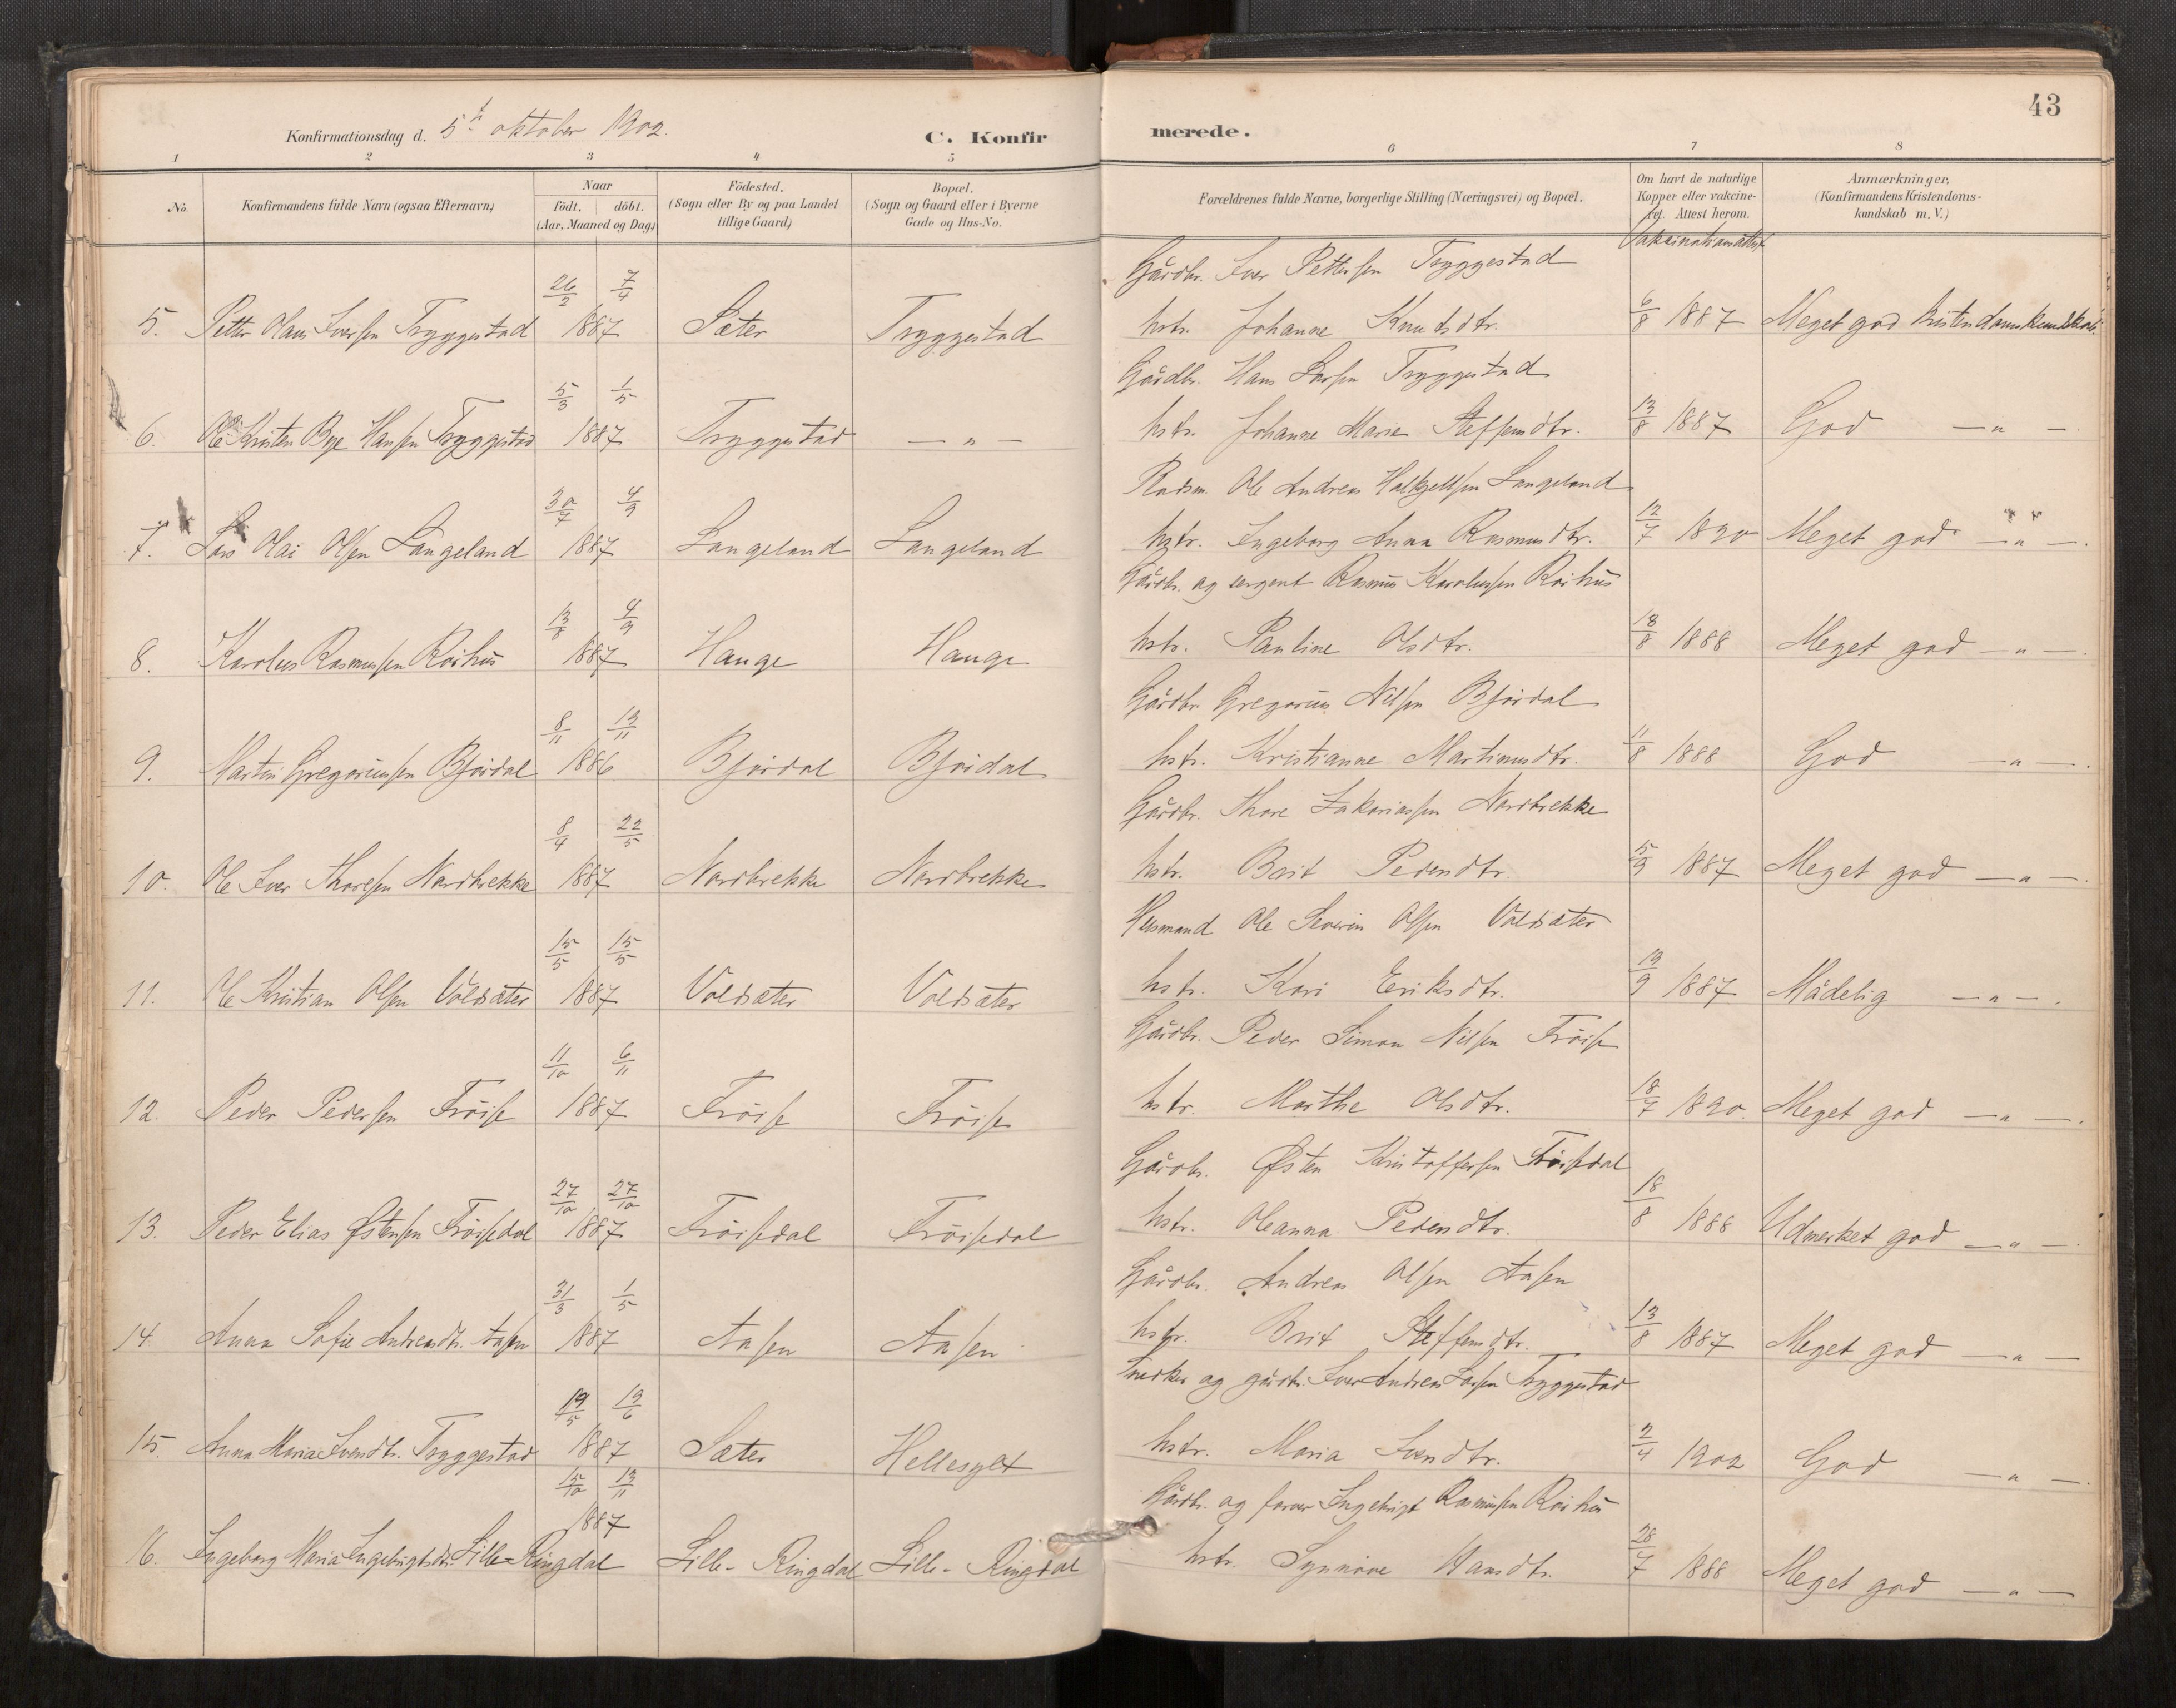 43
Konfirmationsdag d. 5te oktober 1902.
C. Konfirmerede.
1 2 3 4 5 6 7 8
No. Konfirmandens fulde Navn (ogsaa Efternavn) Naar Födt. döbt. (Aar, Maaned og Dag) Födested. (Sogn eller By og paa Landet tillige Gaard) Bopæl. (Sogn og Gaard eller i Byerne Gade og Hus-No. Forældrenes fulde Navne, borgerlige Stilling (Næringsvei) og Bopæl. Om havt de naturlige Kopper eller vakcinevet. Attest herom. Anmærkninger, (Konfirmandens Kristendomskundskab m. V.)
Vakcinationsattest
Gårdbr. Iver Pettersen Tryggestad
5. Petter Olaus Iversen Tryggestad 26/2 7/4 1887 Sæter Tryggestad hstr. Johanne Knutsdtr. 6/8 1887 Meget god kristendomskundskab.
Gårdbr. Hans Larsen Tryggestad
6. Ole Kristen Bye Hansen Tryggestad 5/3 1/5 1887 Tryggestad — " — hstr. Johanne Marie Steffensdtr. 13/8 1887 God — " —.
Pladsm. Ole Andreas Halkjellsen Langeland
7. Lars Olai Olsen Langeland 30/7 4/9 1887 Langeland Langeland hstr. Ingeborg Anna Rasmusdtr. 12/7 1890 Meget god — " —.
Gårdbr. og sergent Rasmus Karolussen Röihus
8. Karolus Rasmussen Röihus 13/8 4/9 1887 Hauge Hauge hstr. Pauline Olsdtr. 18/8 1888 Meget god — " —.
Gårdbr. Gregorius Nilsen Björdal
9. Martin Gregoriussen Björdal 8/11 13/11 1886 Björdal Björdal hstr. Kristianne Martinusdtr. 11/8 1888 God — " —.
Gårdbr. Thore Zakariassen Nordbrekke
10. Ole Iver Thoresen Nordbrekke 8/4 22/5 1887 Nordbrekke Nordbrekke hstr. Brit Pedersdtr. 5/9 1887 Meget god — " —.
Husmand Ole Severin Olsen Voldsæter
11. Ole Kristian Olsen Voldsæter 15/5 15/5 1887 Voldsæter Voldsæter hstr. Kari Eriksdtr. 19/9 1887 Mådelig — " —.
Gårdbr. Peder Simon Nilsen Fröise
12. Peder Pedersen Fröise 11/10 6/11 1887 Fröise Fröise hstr. Marthe Olsdtr. 18/7 1890. Meget god — " —.
Gårdbr. Østen Kristoffersen Fröisedal
13. Peder Elias Østensen Fröisedal 27/10 27/10 1887 Fröisedal Fröisedal hstr. Oleanna Pedersdtr. 18/8 1888 Udmerket god — " —.
Gårdbr. Andreas Olsen Aasen
14 Anna Sofie Andreasdtr. Aasen 31/3 1/5 1887 Aasen Aasen hstr. Brit Steffensdtr. 13/8 1887 Meget god — " —
Snedker og gårdbr. Iver Andreas Larsen Tryggestad
15. Anna Maria Iversdtr. Tryggestad 19/5 19/6 1887 Sæter Hellesylt hstr. Maria Iversdtr. 2/4 1902 God — " —.
Gårdbr. og farver Ingebrigt Rasmussen Röihus
16. Ingeborg Maria Ingebrigtsdtr. Lille-Ringdal 15/10 13/11 1887 Lille-Ringdal Lille-Ringdal hstr. Synnöve Hansdtr. 28/7 1888 Meget god — " —